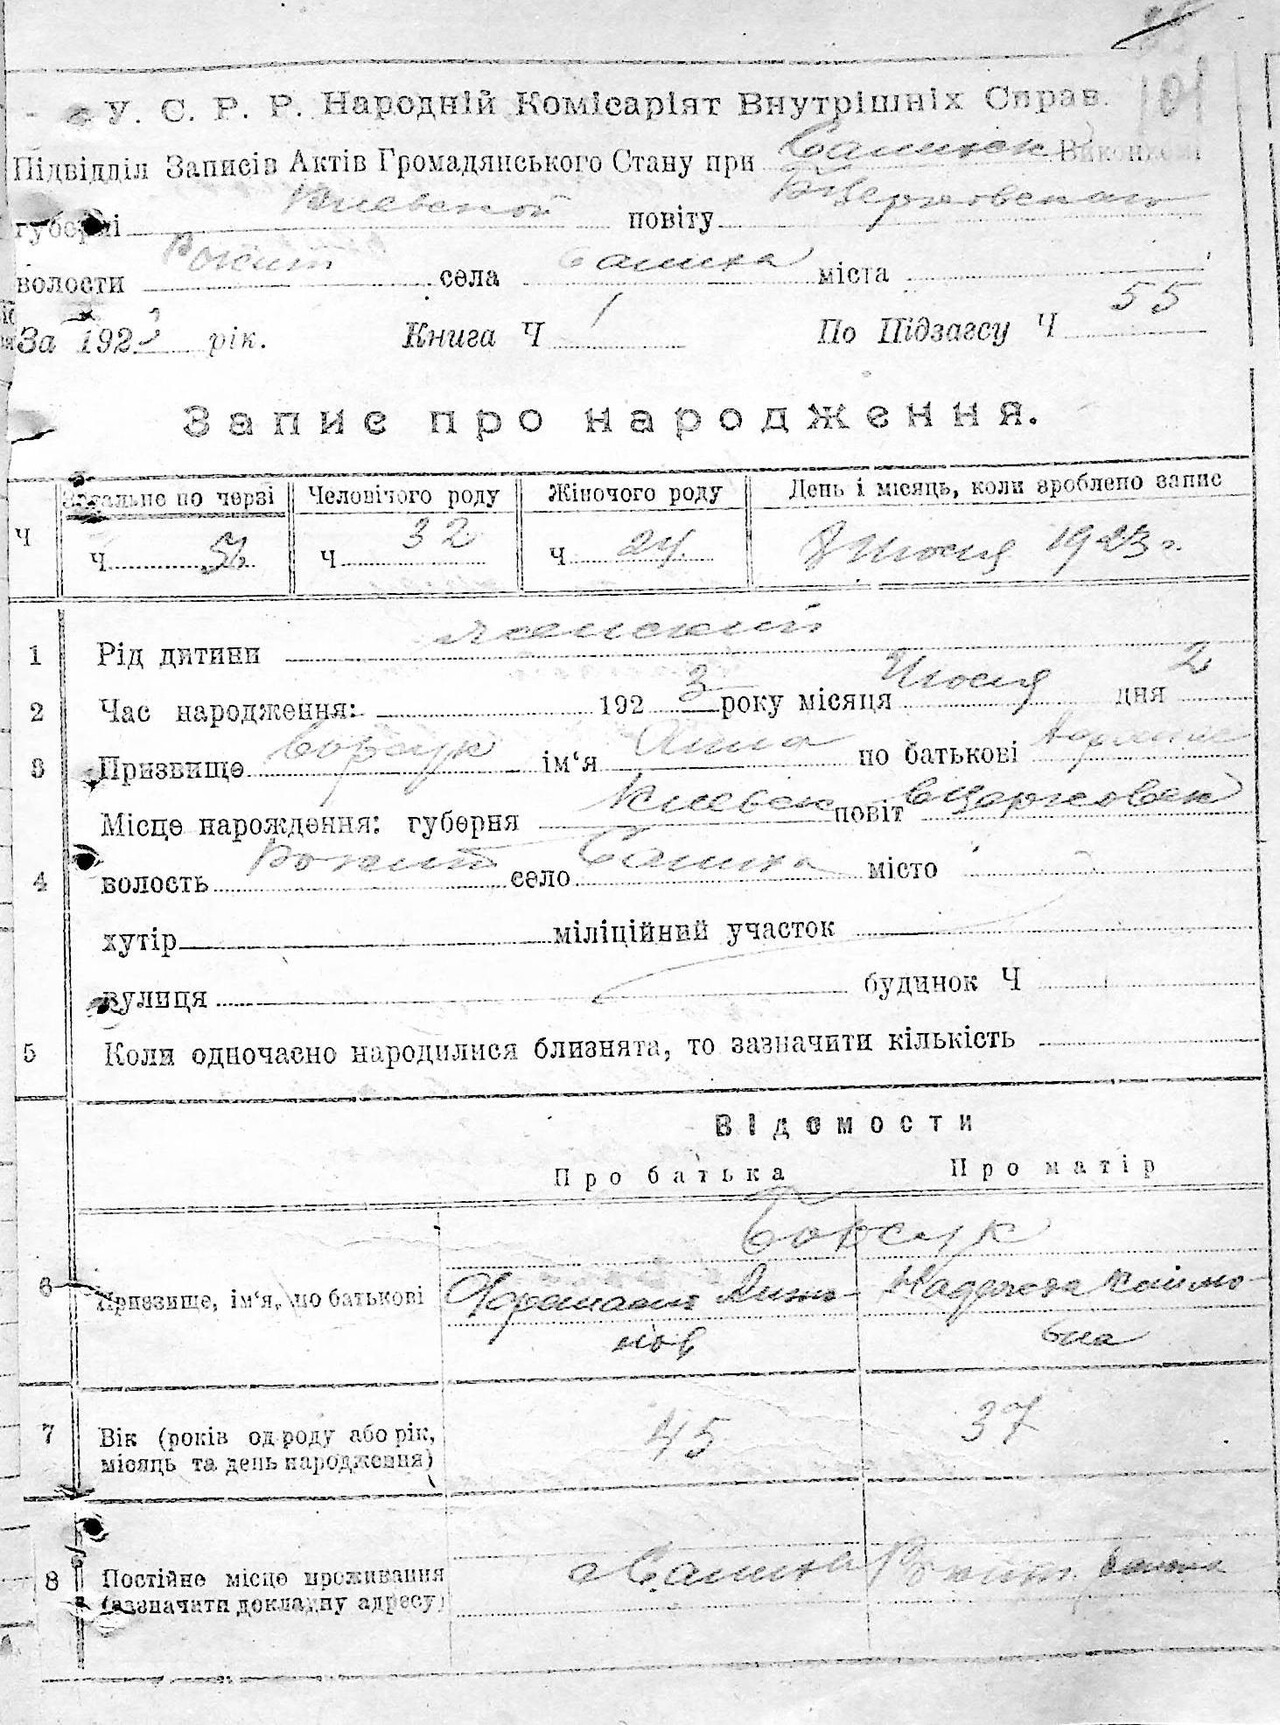 У. С. Р. Р. Народній Комісаріят Внутрішніх Справ.
Підвідділ Записів Актів Громадянського Стану при Саливск Виконкомі
губерні Киевской повіту Бцерковского
волости Рокит села Салиха міста
За 1923 рік. Книга Ч 1 По Підзагсу Ч 55
Запис про народження.
Ч Загальне по черзі Человічого роду Жіночого роду День і місяць, коли зроблено запис
Ч Ч 32 Ч 24 1923 г.
1 Рід дитини женский
2 Час народження: 1923 року місяця дня 2
3 Призвище Борсук ім‘я Анна по батькові
4 Місце нарождення: губерня Киевск повіт Бцерковск
волость Рокит село Салиха місто
хутір міліційний участок
вулиця будинок Ч
5 Коли одночасно народилися близнята, то зазначити кількість
Відомости
Про батька Про матір
Борсук
6 Призвище, ім‘я, по батькові Надежда
нов вна
7 Вік (років од роду або рік, місяць та день народження) 45 37
8 Постійне місце проживання (зазначити докладну адресу) с Салиха Рокит.